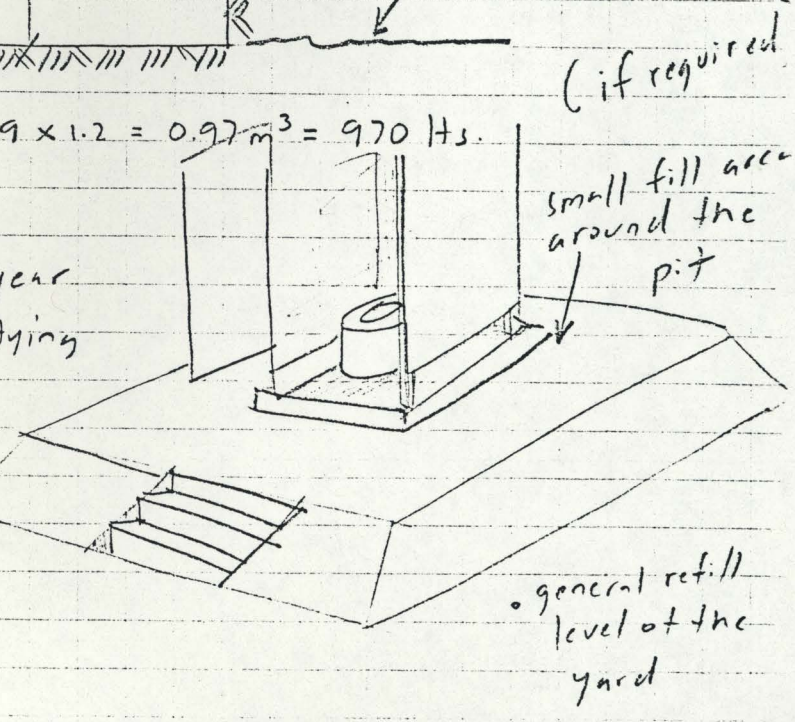 ( if required
9 x 1.2 = 0.97 m³ = 970 lts.
small fill area
around the
pit
year
• general refill
level of the
yard